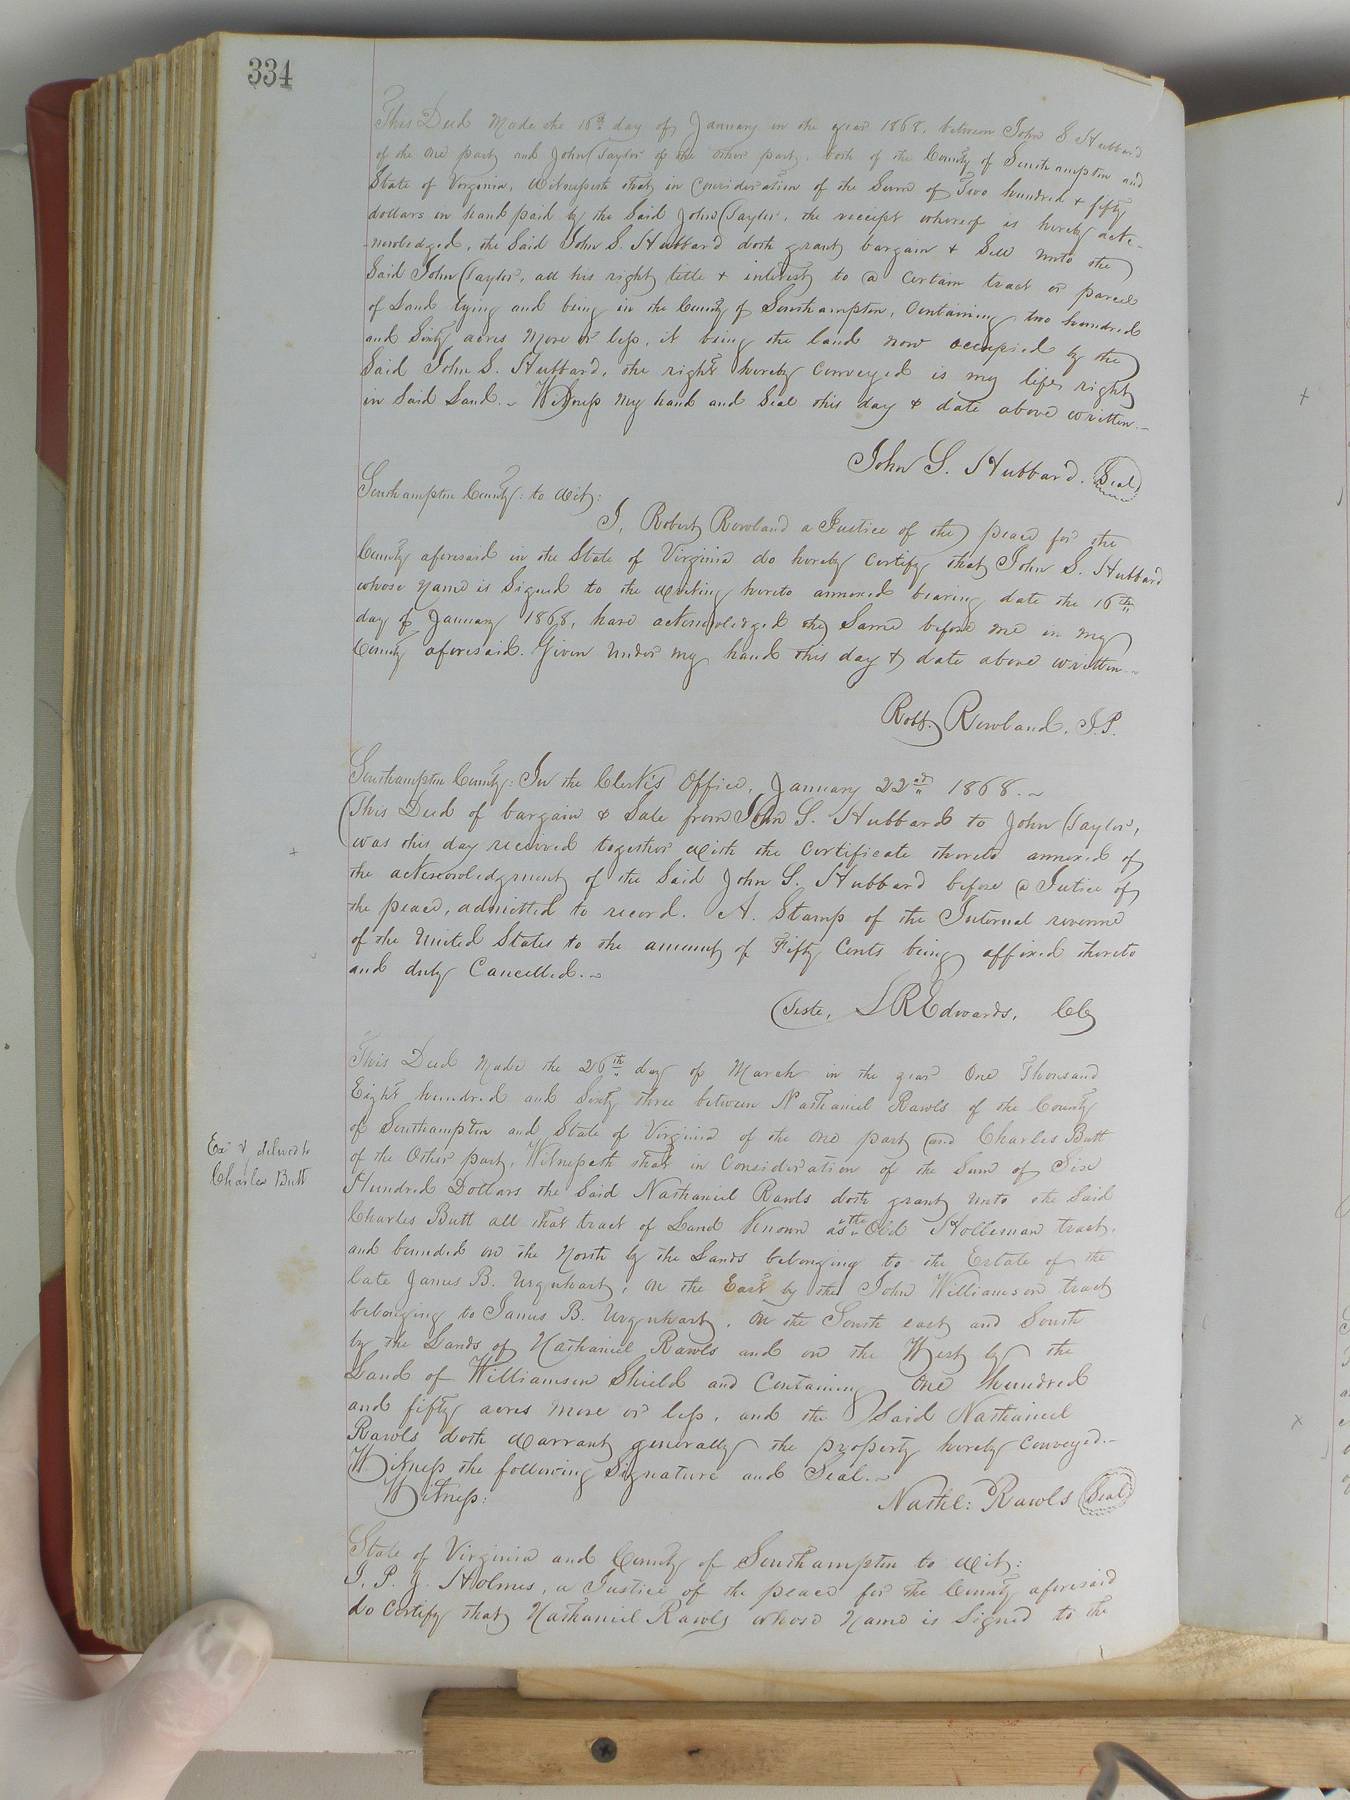 334
This Deed Made the 16th day of January in the year 1868, between John S Hubbard
of the one part and John Taylor of the other part, both of the County of Southampton and
State of Virginia, Witnesseth that in consideration of the Sum of Two hundred & fifty
dollars in hand paid by the Said John Taylor, the receipt whereof is hereby ack-
-nowledged, the Said John S. Hubbard doth grant bargain & Sell unto the
Said John Taylor, all his right title & interest to a certain tract or parcel
of Land lying and being in the County of Southampton, Containing two hundred
and Sixty acres More or less, it being the land now occupied by the
Said John S. Hubbard, the right hereby conveyed is my life right
in Said Land.~ Witness my hand and Seal this day & date above written.~
John S. Hubbard. Seal
Southampton County: to Wit:
I, Robert Rowland a Justice of the peace for the
County aforesaid in the State of Virginia do hereby certify that John S. Hubbard
whose name is Signed to the writing hereto annexed bearing date the 16th
day of January 1868, have acknowledged the Same before me in my
County aforesaid. Given under my hand this day & date above written.~
Robt. Rowland, J.P.
Southampton County: In the Clerk's Office, January 22nd 1868.~
This Deed of bargain & Sale from John S. Hubbard to John Taylor,
was this day received together with the certificate thereto annexed of
the acknowledgment of the Said John S. Hubbard before a Jutice of
the peace, admitted to record. A. Stamp of the Internal revenue
of the United States to the amount of Fifty Cents being affixed thereto
and duly Cancelled.~
Teste, L R Edwards, CC
This Deed Made the 26th day of March in the year One Thousand
Eight hundred and Sixty three between Nathaniel Rawls of the County
of Southampton and State of Virginia of the one part and Charles Butt
of the Other part, Witnesseth that in Consideration of the Sum of Six
Hundred Dollars the Said Nathaniel Rawls doth grant unto the Said
Ex & deliver to
Charles Butt
Charles Butt all that tract of Land Known as the Old Holleman tract,
and bounded on the North by the Lands belonging to the Estate of the
late James B. Urquhart, on the East by the John Williamson tract
belonging to James B. Urquhart, on the South east and South
by the Lands of Nathaniel Rawls and on the West by the
Land of Williamson Shield and Containing One hundred
and fifty acres more or less, and the Said Nathaniel
Rawls doth Warrant generally the property hereby Conveyed.~
Witness the following Signature and Seal.~
Witness: Nathl: Rawls Seal
State of Virginia and County of Southampton to Wit:
I, P. J. Holmes, a Justice of the peace for the County aforesaid
do certify that Nathaniel Rawls whose Name is Signed to the